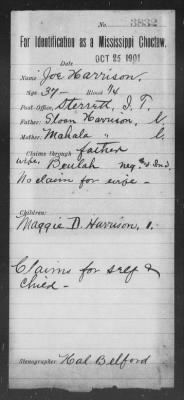 No. 3832
For Identification as a Mississippi Choctaw.
OCT 25 1901
Date
Name Joe Harrison.
Age 37 — Blood 1/4
Post-Office, Sterrett, I. T.
Father: Sloan Harrison,
Mother: Mahala "
Claims through father
wife, Beulah neg & Ind.
No claim for wife —
Children:
Maggie D. Harrison, 1.
Claims for self &
child —
Stenographer Hal Belford